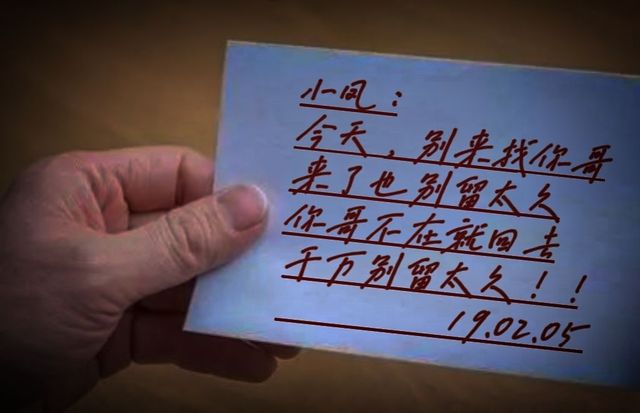 小凤:
今天,别来找你哥
来了也别留太久
你哥不在就回去
千万别留太久!!
19.02.05